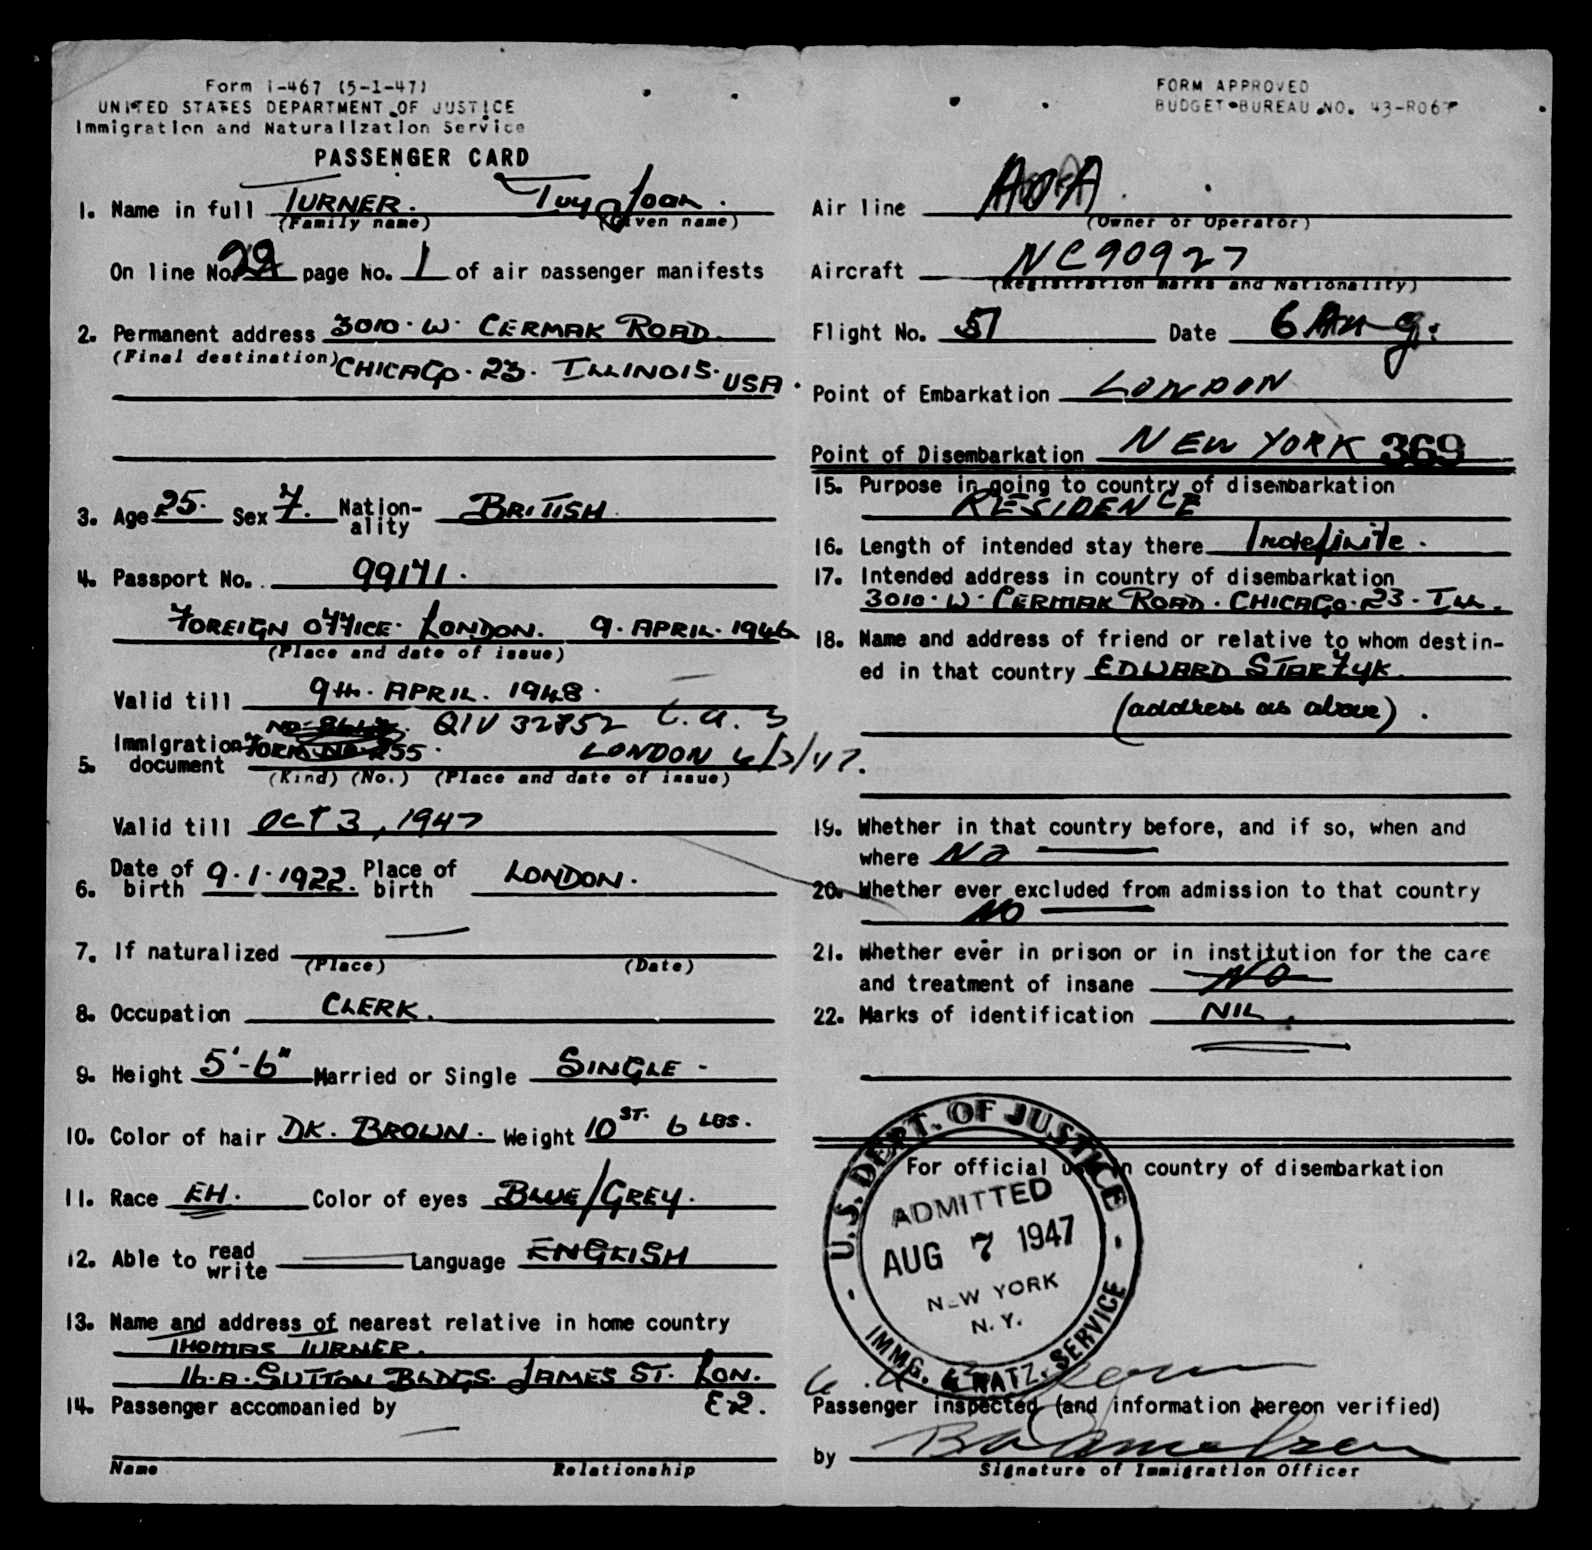 Form I-467 (5-1-47)
UNITED STATES DEPARTMENT OF JUSTICE
Immigration and Naturalization Service
PASSENGER CARD
1. Name in full TURNER. Ivy Joan.
(Family name) (Given name)
On line No. 29 page No. 1 of air passenger manifests
2. Permanent address 3010. W. CERMAK ROAD.
(Final destination) CHICAGO. 23. ILLINOIS. USA.
3. Age 25. Sex F. Nationality BRITISH.
4. Passport No. 99171.
FOREIGN OFFICE. LONDON. 9. APRIL. 1946
(Place and date of issue)
Valid till 9th. APRIL. 1948.
QIV 32852
5. Immigration document FORM NO 255. LONDON
(Kind) (No.) (Place and date of issue)
Valid till OCT 3, 1947
6. Date of birth 9.1.1922. Place of birth LONDON.
7. If naturalized —
(Place) (Date)
8. Occupation CLERK.
9. Height 5'-6" Married or Single SINGLE -
10. Color of hair DK. BROWN. Weight 10 ST. 6 LBS.
11. Race EH. Color of eyes BLUE/GREY.
12. Able to read write — Language ENGLISH
13. Name and address of nearest relative in home country
THOMAS TURNER.
16.A. SUTTON BLDGS. JAMES ST. LON.
14. Passenger accompanied by E2.
—
Name Relationship
FORM APPROVED
BUDGET BUREAU NO. 43-R067
Air line AOA
(Owner or Operator)
Aircraft NC90927
(Registration marks and Nationality)
Flight No. 51 Date 6 Aug.
Point of Embarkation LONDON
Point of Disembarkation NEW YORK 369
15. Purpose in going to country of disembarkation
RESIDENCE
16. Length of intended stay there Indefinite.
17. Intended address in country of disembarkation
3010. W. CERMAK ROAD. CHICAGO. 23. ILL.
18. Name and address of friend or relative to whom destin-
ed in that country EDWARD STARZYK.
(address as above).
19. Whether in that country before, and if so, when and
where NO —
20. Whether ever excluded from admission to that country
NO —
21. Whether ever in prison or in institution for the care
and treatment of insane NO
22. Marks of identification NIL.
For official use in country of disembarkation
U.S. DEPT. OF JUSTICE
ADMITTED
AUG 7 1947
NEW YORK
N.Y.
IMMG. & NATZ. SERVICE
Passenger inspected (and information hereon verified)
by
Signature of Immigration Officer